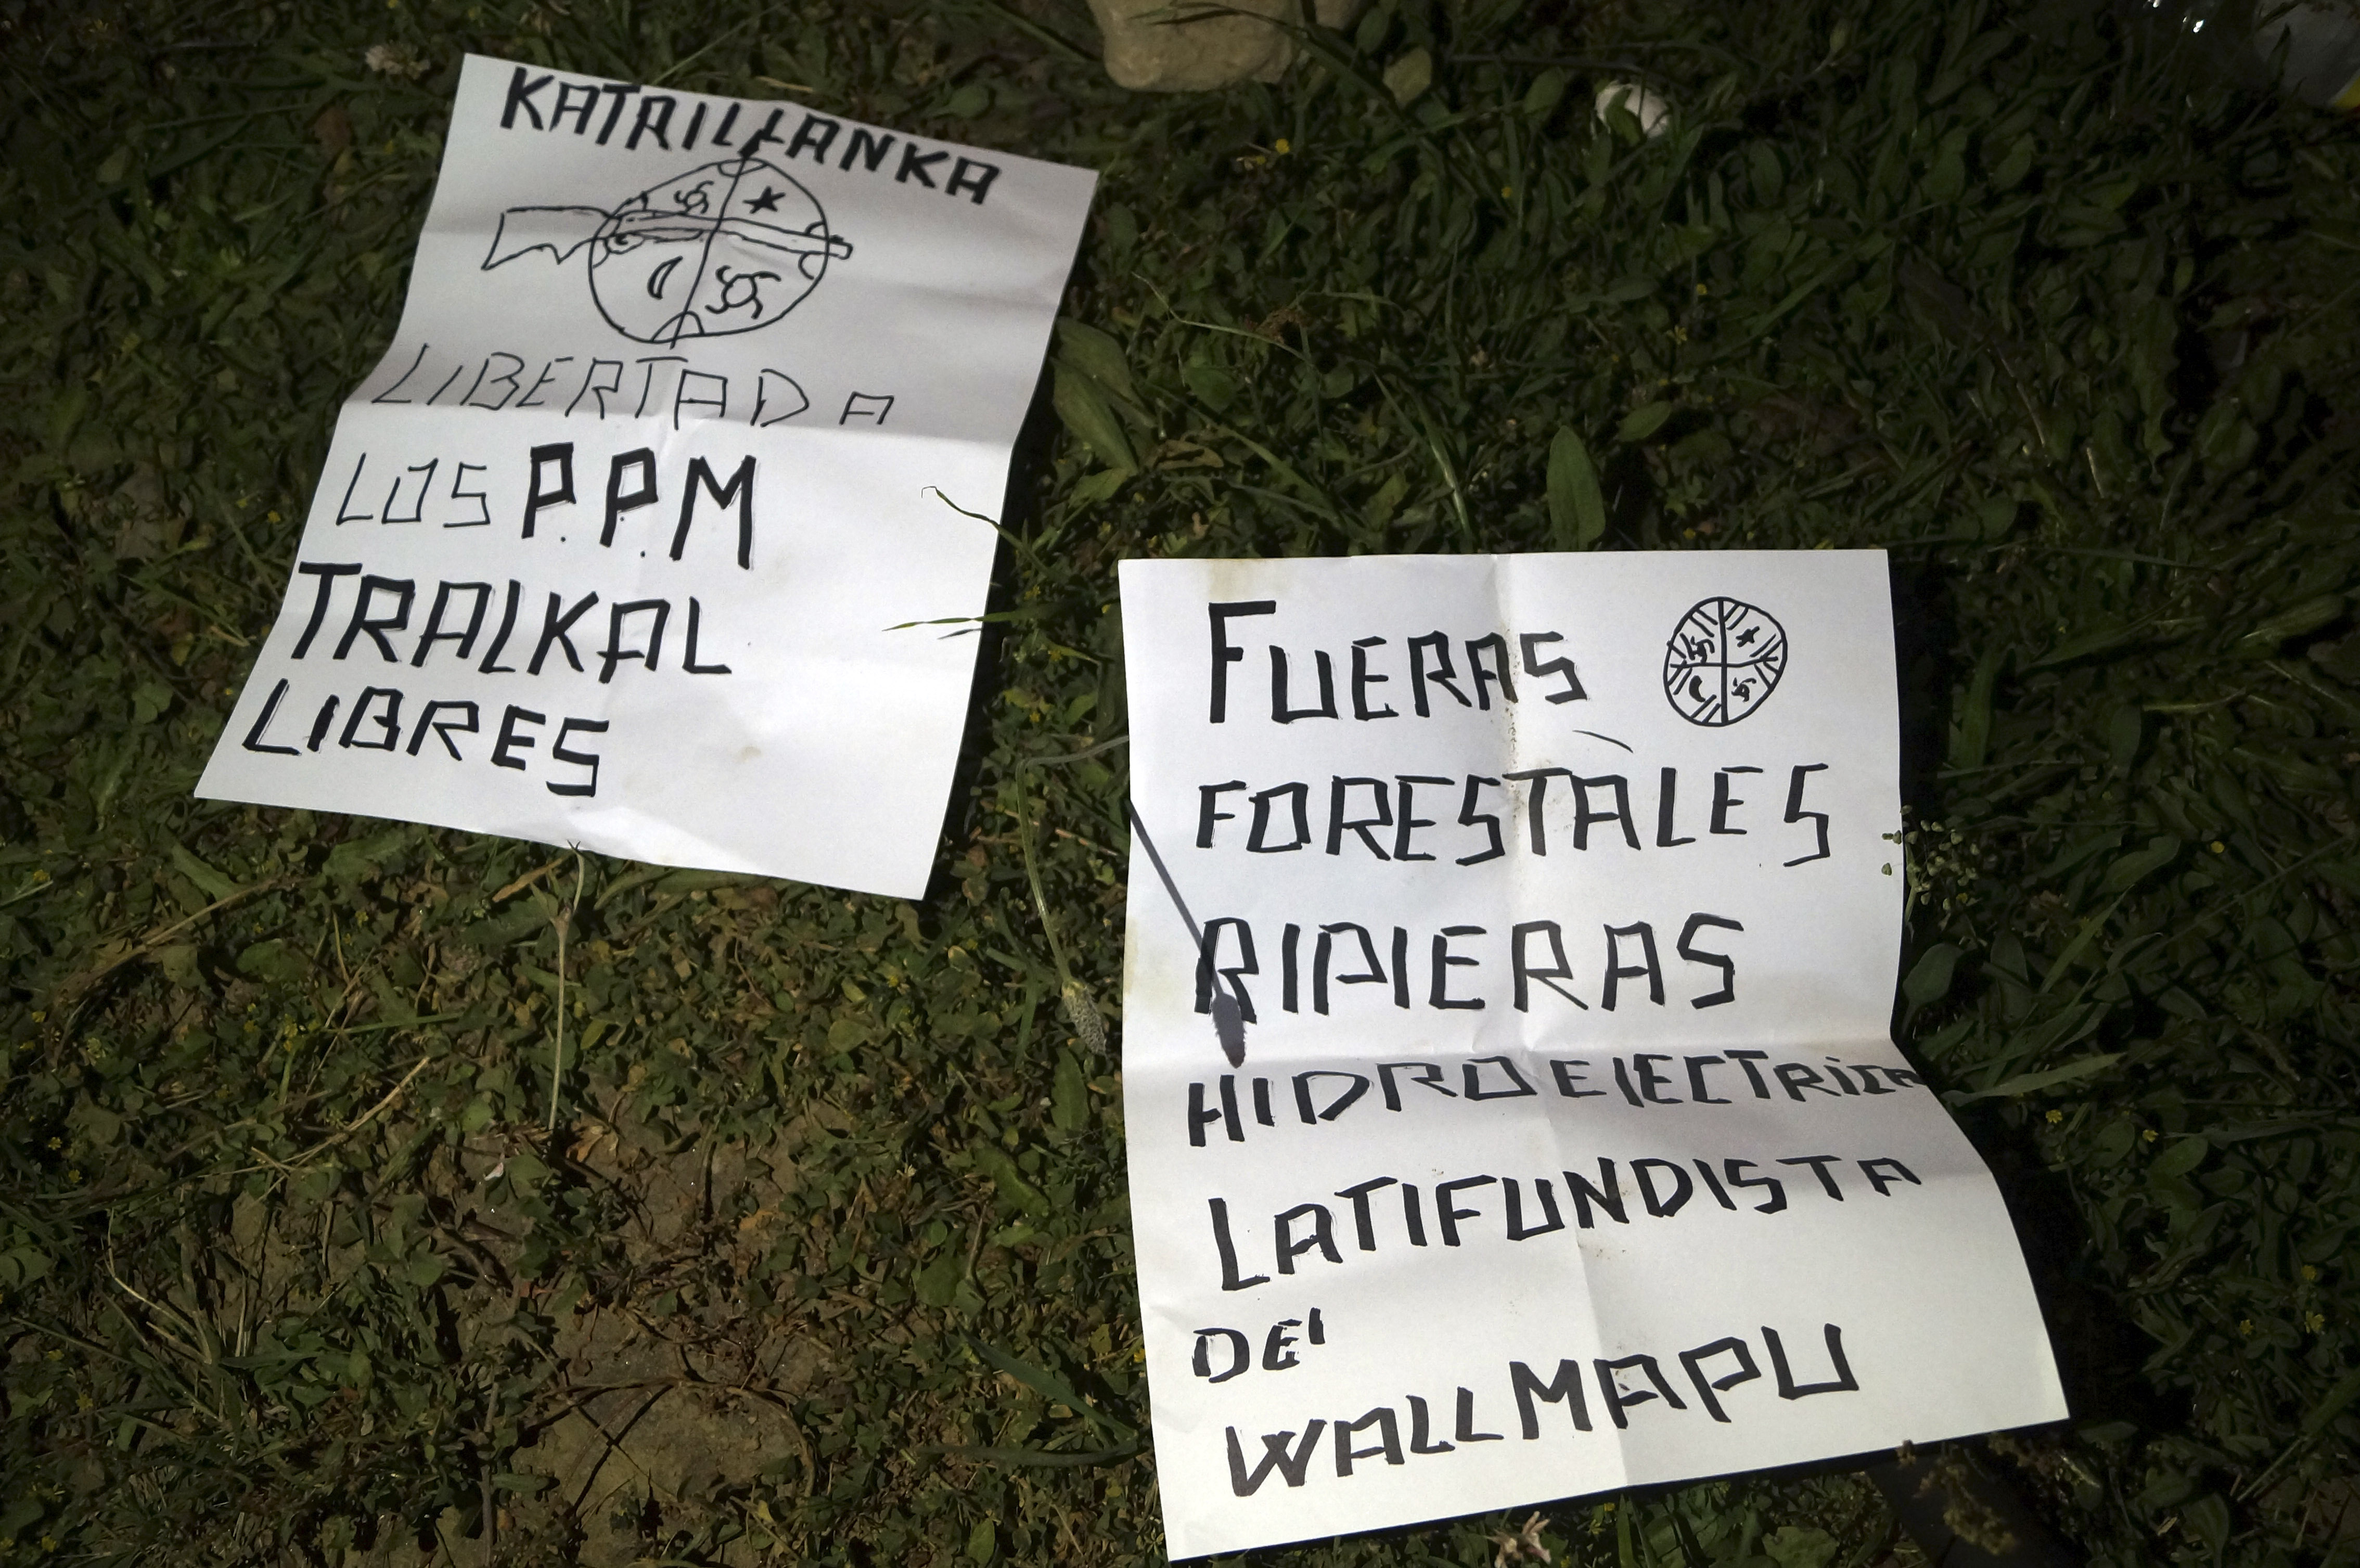 KATRILLANKA
LIBERTAD A
LOS P.P.M
TRALKAL
LIBRES
FUERAS
FORESTALES
RIPIERAS
HIDROELECTRICA
LATIFUNDISTA
DEl
WALLMAPU